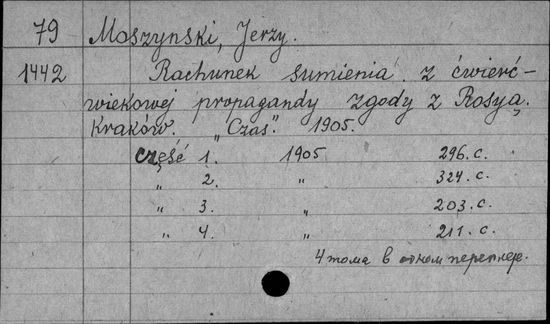 79 Moszynski, Jerzy.
1442 Rachunek sumienia z ćwierć-
wiekowej propagandy zgody z Rosyą.
Kraków. „Czas". 1905.
Część 1. 1905 296. c.
„ 2. „ 324. c.
„ 3. „ 203. c.
„ 4. „ 211. c.
4 тома в одном переплете.